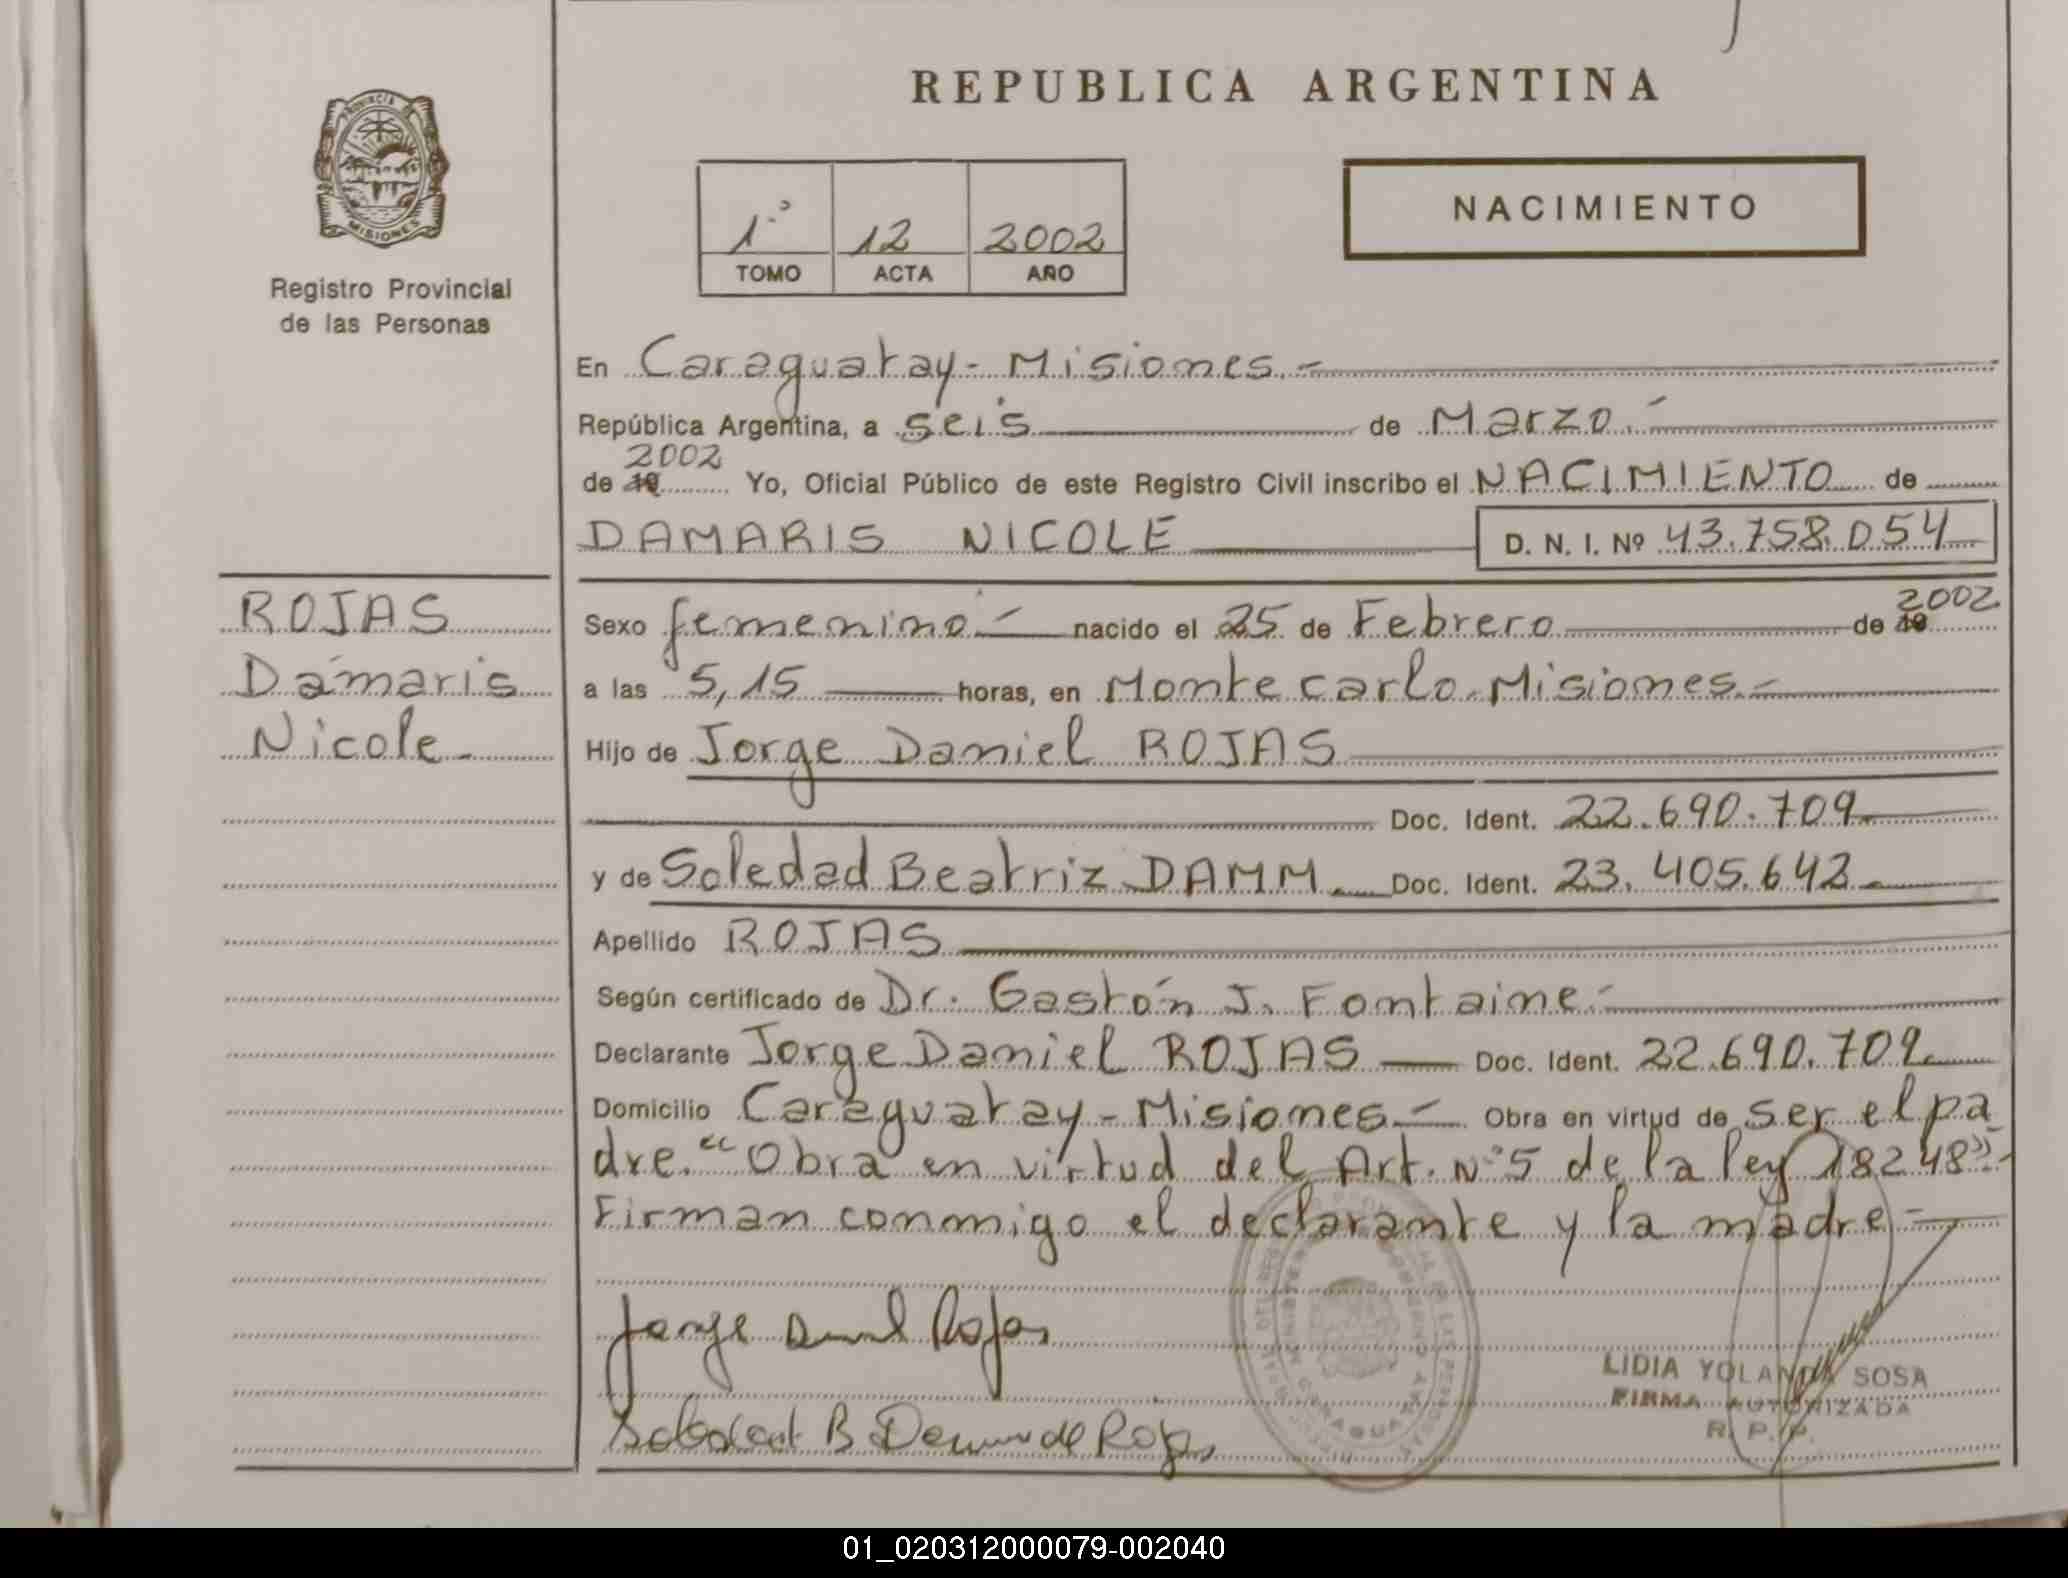 REPUBLICA ARGENTINA
PROVINCIA DE
MISIONES
Registro Provincial
de las Personas
1º 12 2002
TOMO ACTA AÑO
NACIMIENTO
En Caraguatay - Misiones.-
República Argentina, a seis de Marzo.-
2002
de 19 Yo, Oficial Público de este Registro Civil inscribo el NACIMIENTO de
DAMARIS NICOLE D. N. I. Nº 43.758.054
ROJAS
Dámaris
Nicole-
2002
Sexo femenino- nacido el 25 de Febrero de 19
a las 5,15 horas, en Montecarlo-Misiones.-
Hijo de Jorge Daniel ROJAS
Doc. Ident. 22.690.709-
y de Soledad Beatriz DAMM. Doc. Ident. 23.405.642-
Apellido ROJAS
Según certificado de Dr. Gastón J. Fontaine.-
Declarante Jorge Daniel ROJAS Doc. Ident. 22.690.709.
Domicilio Caraguatay - Misiones.- Obra en virtud de ser el pa
dre. "Obra en virtud del Art. Nº 5 de la ley 18248"-
Firman conmigo el declarante y la madre-
Jorge Daniel Rojas
Soledad B Damm de Rojas
CARAGUATAY
LIDIA YOLANDA SOSA
FIRMA AUTORIZADA
R. P. P.
01_020312000079-002040